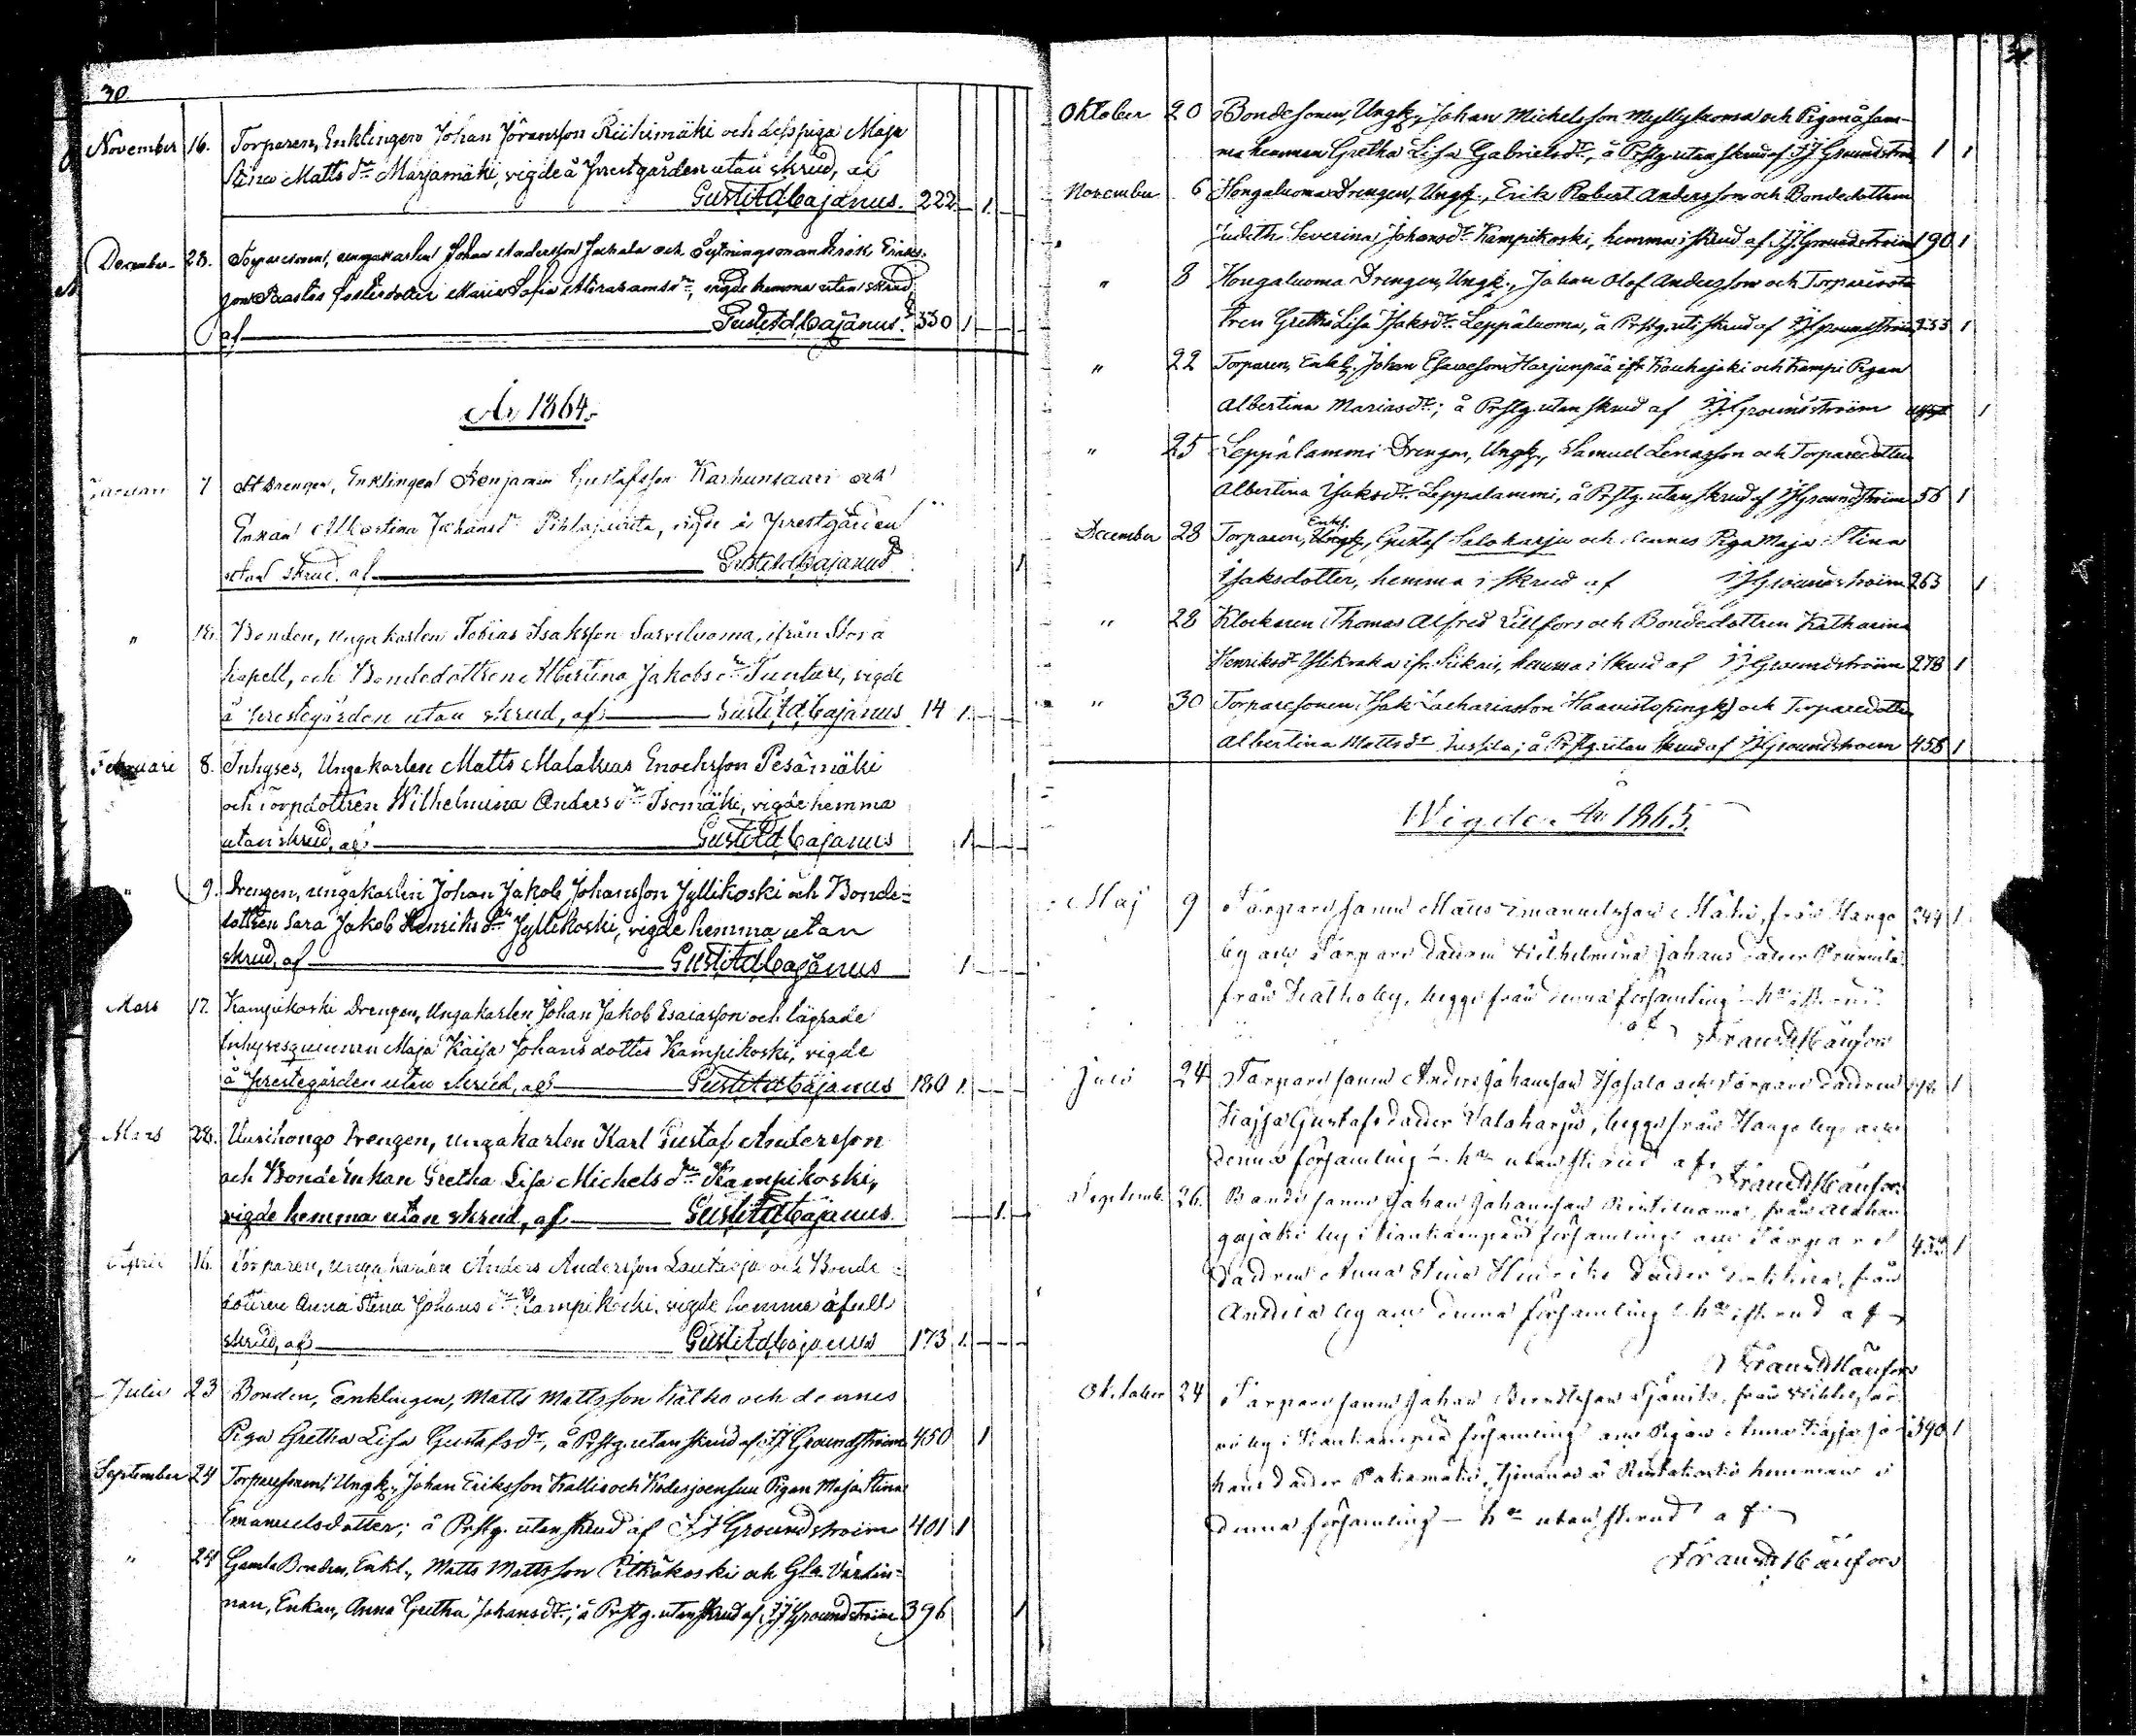 30.
November 16. Torparen, Enklingen Johan Jöransson Riihimäki och dess piga Maja
Stina Matts dr Marjamäki, vigde å Prestgården utan skrud, af
Gust: Ad: Cajanus. 222 1
December 28. Torparesonen, ungakarlen Johan Andersson Juhala och Sytningsmannen Erik Eriks-
son Paastos fosterdotter Maria Sofia Abrahamsdr, vigde hemma utan skrud,
af Gust: Ad: Cajanus. 330 1
År 1864.
Januari 7 Drengen, Enklingen Benjamin Gustafsson Karhunsaari och
Enkan Albertina Johansdr Pihlajaviita, vigde å Prestgården
utan skrud, af Gust: Ad: Cajanus 1
" 18. Bonden, ungakarlen Tobias Isaksson Sarviluoma, ifrån Storå
kapell, och Bondedottren Albertina Jakobs dr Tuuturi, vigde
å Prestegården utan skrud, af Gust: Ad: Cajanus 14 1
Februari 8. Inhyses, Ungakarlen Matts Malakias Enochsson Pesämäki
och Torpdottren Wilhelmina Anders dr Isomäki, vigde hemma
utan skrud, af Gust: Ad: Cajanus 1
" 9. Drengen, ungakarlen Johan Jakob Johansson Jyllikoski och Bonde-
dottren Sara Jakob Henriks dr Jyllikoski, vigde hemma utan
skrud, af Gust: Ad: Cajanus 1
Mars 17. Kampikoski Drengen, Ungakarlen Johan Jakob Esaiasson och lägrade
Inhysesqvinnan Maja Kaisa Johansdotter Kampikoski, vigde
å Prestegården utan skrud, af Gust: Ad: Cajanus 180 1
Mars 28. Uurihongo Drengen, ungakarlen Karl Gustaf Andersson
och Bonde Enkan Gretha Lisa Michels dr Kampikoski,
vigde hemma utan skrud, af Gust: Ad: Cajanus. 1
April 16. Torparen, ungakarlen Anders Andersson Lautaoja och Bonde-
dottren Anna Stina Johans dr Kampikoski, vigde hemma å full
skrud, af Gust: Ad: Cajanus 173 1
Julii 23 Bonden, Enklingen, Matts Mattsson Kätkä och dennes
Piga Gretha Lisa Gustafsdr, å Prstg. utan skrud af JJ Groundstroem 450 1
September 24 Torparesonen, Ungk., Johan Eriksson Kallio och Kodesjoensuu Pigan Maja Stina
Emanuelsdotter; å Prstg. utan skrud af JJ Groundstroem 401 1
" 24 Gamla Bonden, Enkl., Matts Mattsson Pitkäkoski och Gla. Värdin-
nan, Enkan, Anna Gretha Johansdr.; å Prstg. utan skrud af JJ Groundstroem 396 1
Oktober 20 Bondesonen, Ungk., Johan Michelsson Myllyluoma och Pigan å sam-
ma hemman Gretha Lisa Gabrielsdr, å Prstg. utan skrud af JJ Groundstroem 1 1
November 6 Hongaluoma Drengen, Ungk., Erik Robert Andersson och Bondedottren
Judith Severina Johansdr Kampikoski, hemma i skrud af JJ Groundstroem 190 1
" 8 Hongaluoma Drengen, Ungk., Johan Olof Andersson och Torparedot-
tren Gretha Lisa Isaksdr. Leppäluoma, å Prstg. uti skrud af JJ Groundstroem 233 1
" 22 Torparen, Enkl. Johan Esaiasson Harjunpää ifr Kauhajoki och Kampi Pigan
Albertina Mariasdr.; å Prstg. utan skrud af JJ Groundstroem 1
" 25 Leppälammi Drengen, Ungk., Samuel Lenasson och Torparedottren
Albertina Isaksdr Leppälammi, å Prstg. utan skrud af JJ Groundstroem 56 1
December 28 Torparen, Enkl. Gustaf Saloharju och dennes Piga Maja Stina
Isaksdotter, hemma i skrud af JJ Groundstroem 263 1
" 28 Klockaren Thomas Alfred Lillfors och Bondedottren Katharina
Henriksdr Ylikoska ifr. Siikais, hemma i skrud af JJ Groundstroem 278 1
" 30 Torparesonen Isak Zachariasson Haavisto (ungk) och Torparedottren
Albertina Mattsdr Jussila; å Prstg. utan skrud af JJ Groundstroem 458 1
Wigde År 1865.
Maj 9 Torpare sonen Matts Emanuelsson Mäki, från Hango 244 1
by och Torpare dottren Wilhelmina Johans dotter
från Kätkä by, begge från denna församling
af Frans H Känfors
24 Torpare sonen Anders Johansson och Torpare dottren 1
Kajsa Gustafs dotter Saloharju, begge från Hango by och
denna församling hm utan skrud af
Frans H Känfors
September 26. Bonde sonen Johan Johansson från
by i församling och Torpare 1
dottren Anna Stina Henriks dotter från
Anttila by och denna församling hm i skrud af
Frans H Känfors
Oktober 24 Torpare sonen Johan från
by i församling och Pigan Anna Kajsa Jo- 390 1
hans dotter hemman i
denna församling – hm utan skrud af
Frans H Känfors